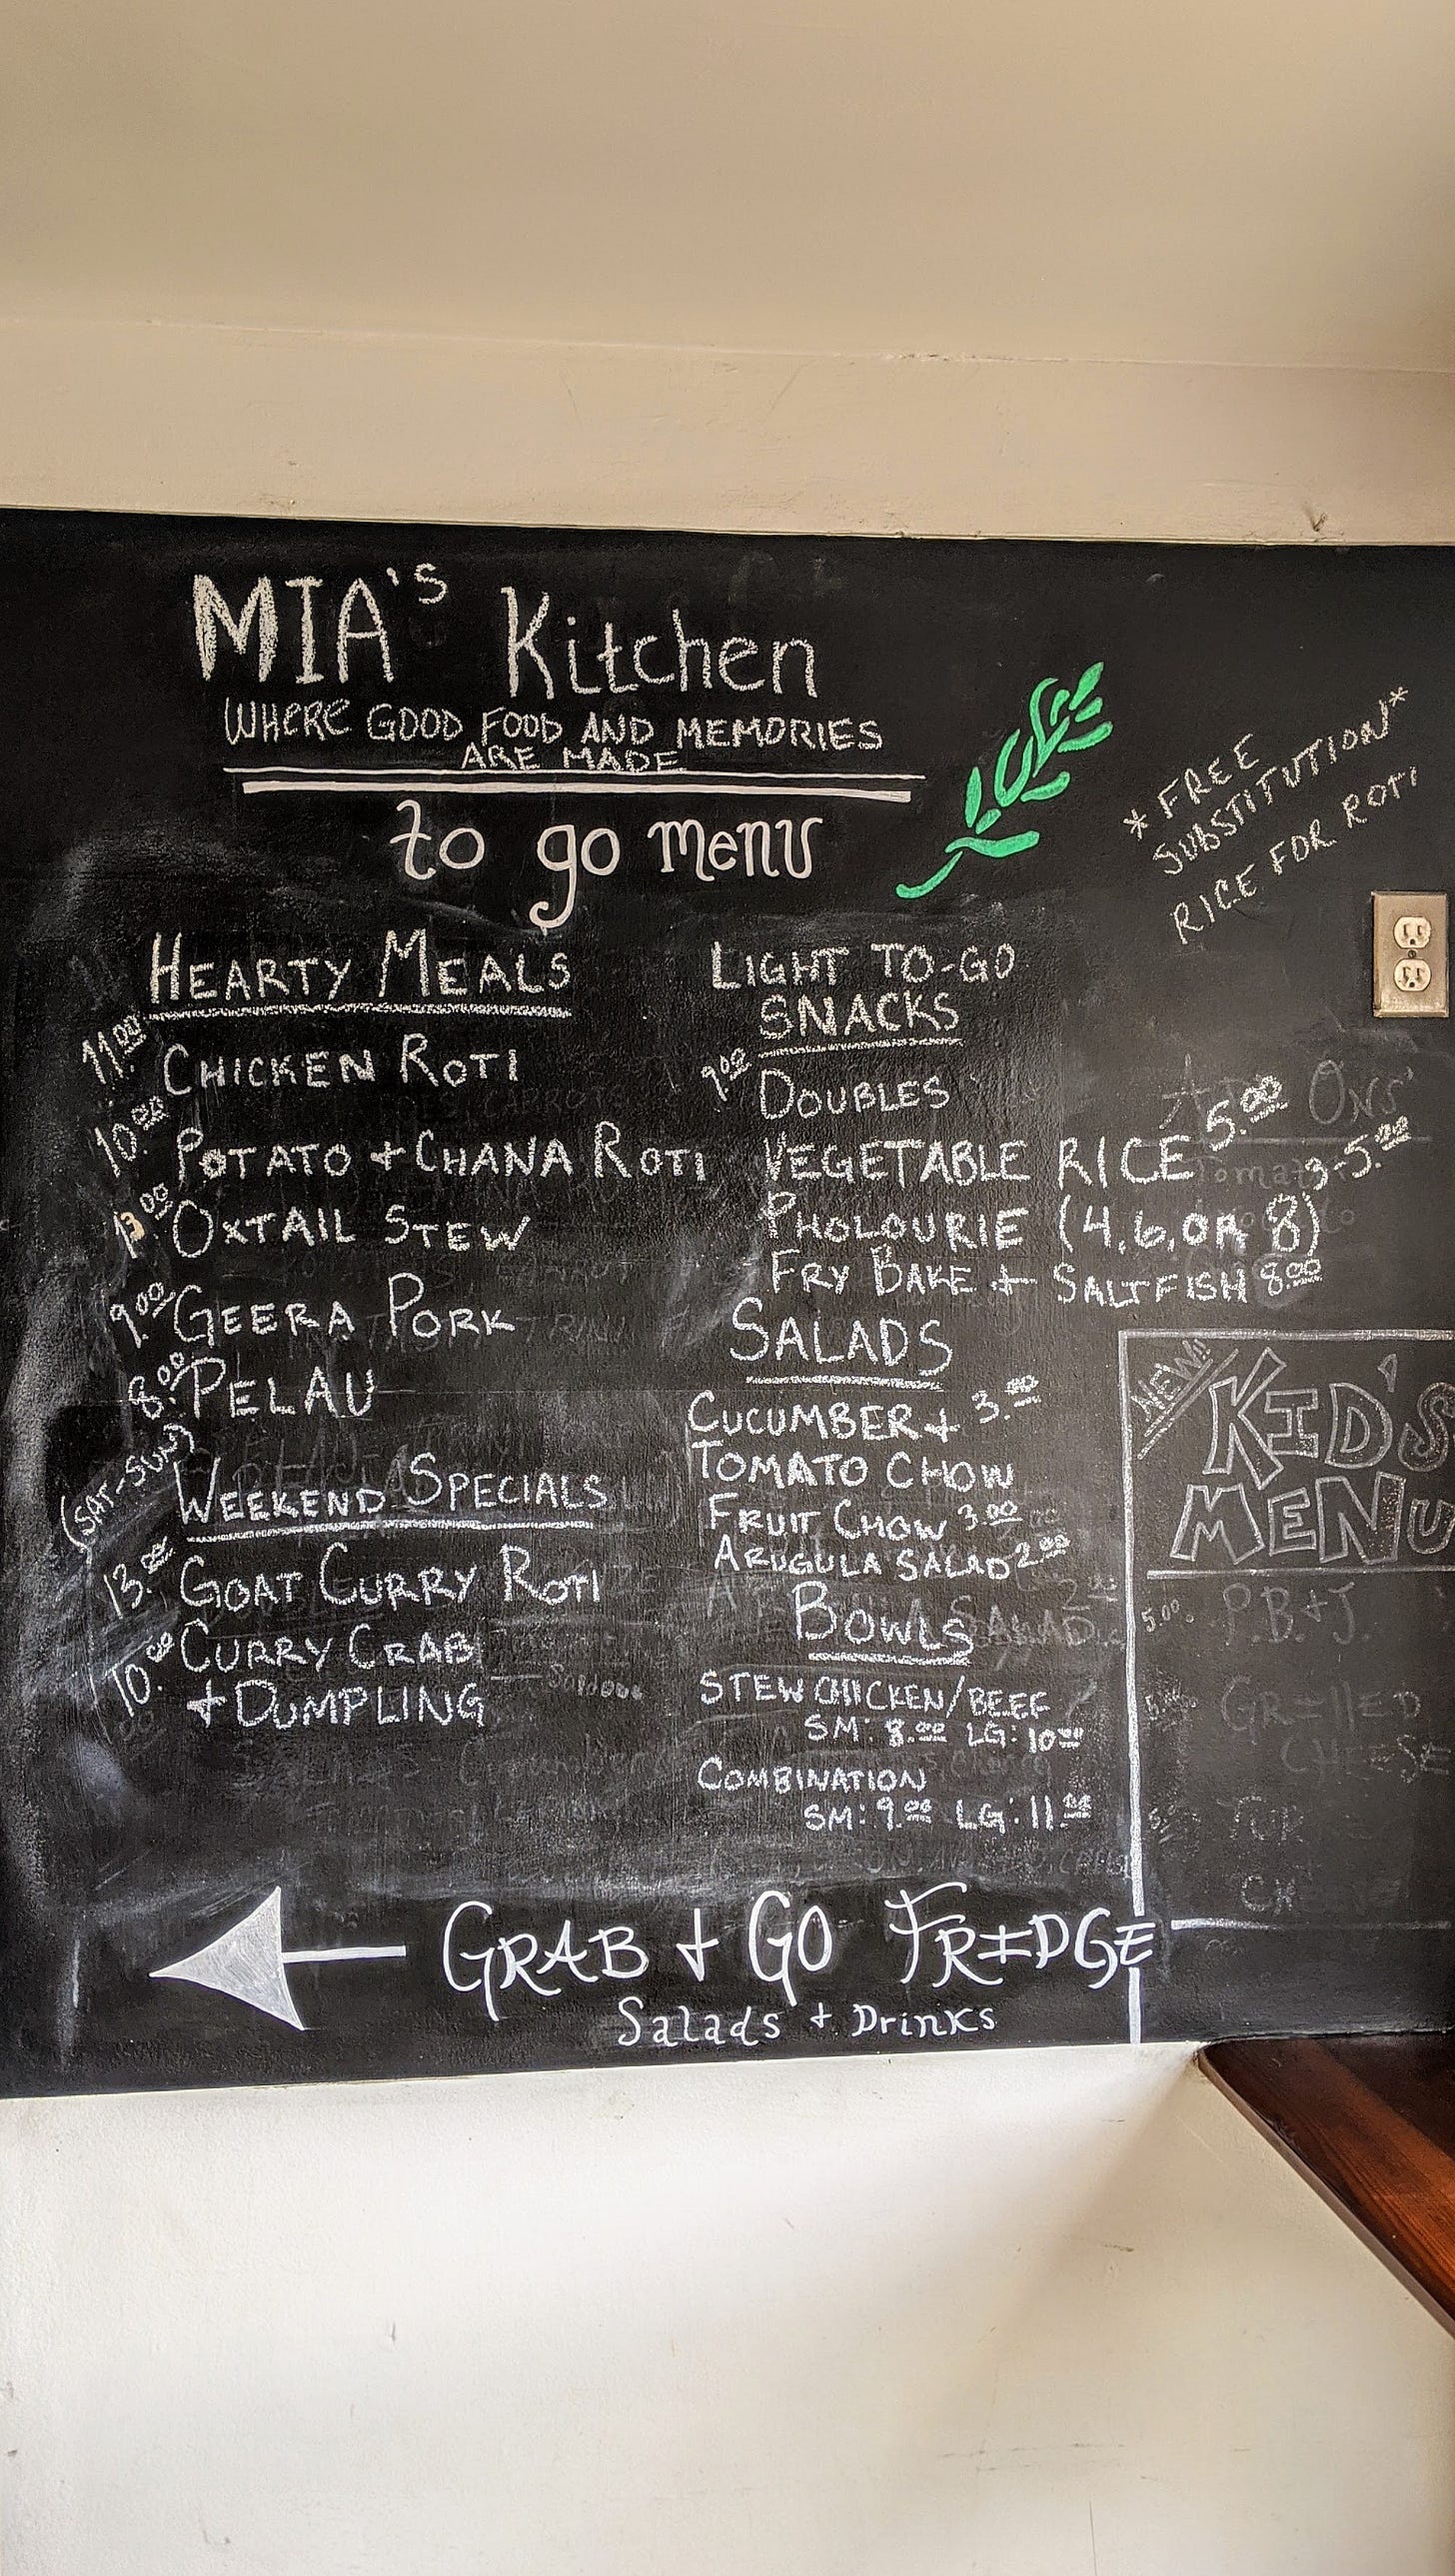 MIA'S Kitchen
WHERE GOOD FOOD AND MEMORIES
ARE MADE
to go menu
*FREE
SUBSTITUTION*
RICE FOR ROTI
HEARTY MEALS
11.00 CHICKEN ROTI
10.00 POTATO + CHANA ROTI
13.00 OXTAIL STEW
9.00 GEERA PORK
8.00 PELAU
(SAT-SUN)
WEEKEND SPECIALS
13.00 GOAT CURRY ROTI
10.00 CURRY CRAB
+ DUMPLING
LIGHT TO-GO
SNACKS
DOUBLES
VEGETABLE RICE 5.00
PHOLOURIE (4,6,OR 8) 3-5.00
FRY BAKE + SALTFISH 8.00
SALADS
CUCUMBER + 3.00
TOMATO CHOW
FRUIT CHOW 3.00
ARUGULA SALAD 2.00
BOWLS
STEW CHICKEN/BEEF
SM: 8.00 LG: 10.00
COMBINATION
SM: 9.00 LG: 11.00
NEW!
KID'S
MENU
5.00 P.B.+J.
GRILLED
CHEESE
GRAB + GO FRIDGE
Salads + Drinks